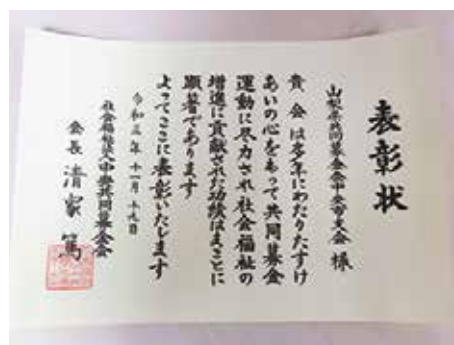 表彰状
山梨県共同募金会中央市支会 様
貴会は多年にわたりたすけ
あいの心をもって共同募金
運動に尽力され社会福祉の
増進に貢献された功績はまことに
顕著であります
よってここに表彰いたします
令和三年十一月十九日
社会福祉法人中央共同募金会
会長 清家 篤